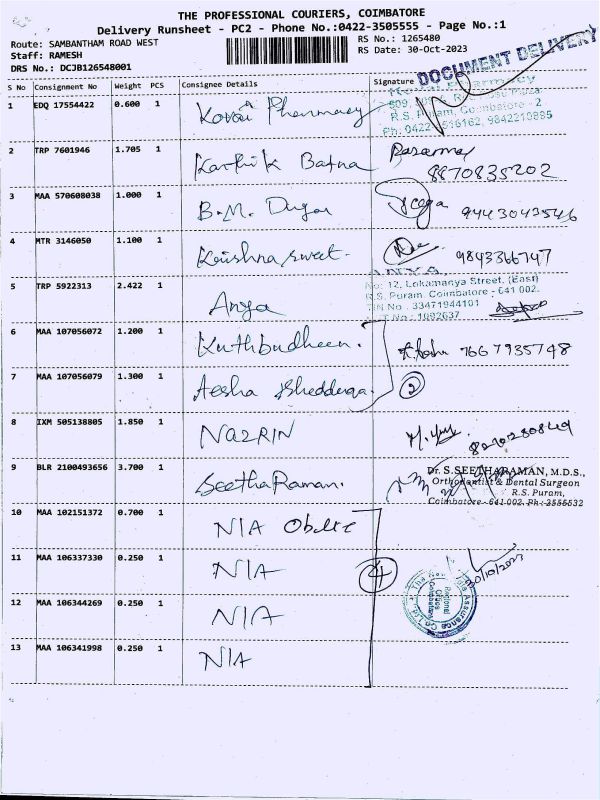 THE PROFESSIONAL COURIERS, COIMBATORE
Delivery Runsheet - PC2 - Phone No.:0422-3505555 - Page No.:1
Route: SAMBANTHAM ROAD WEST RS No.: 1265480
Staff: RAMESH RS Date: 30-Oct-2023
DRS No.: DCJB126548001
DOCUMENT DELIVERY
S No Consignment No Weight PCS Consignee Details Signature
1 EDQ 17554422 0.600 1 Kovai Pharmacy
R.S. Puram, Coimbatore - 2
2 TRP 7601946 1.705 1 Karthik Bafna
8870835202
3 MAA 570608038 1.000 1 B.M. Dugar 9443043546
4 MTR 3146050 1.100 1 Krishna sweet. 9843366747
5 TRP 5922313 2.422 1 Anya
No: 12, Lokamanya Street, (East)
R.S. Puram, Coimbatore - 641 002.
TIN No : 33471944101
6 MAA 107056072 1.200 1 Kuthbudheen. 7667935748
7 MAA 107056079 1.300 1 Aesha 2
8 IXM 505138805 1.850 1 NAZRIN
9 BLR 2100493656 3.700 1 SeethaRaman.
Dr. S.SEETHARAMAN, M.D.S.,
Orthodontist & Dental Surgeon
R.S. Puram,
Coimbatore - 641 002. Ph : 2556532
10 MAA 102151372 0.700 1 NIA
11 MAA 106337330 0.250 1 NIA 4 30/10/2023
12 MAA 106344269 0.250 1 NIA
Regional Office Coimbatore
13 MAA 106341998 0.250 1 NIA